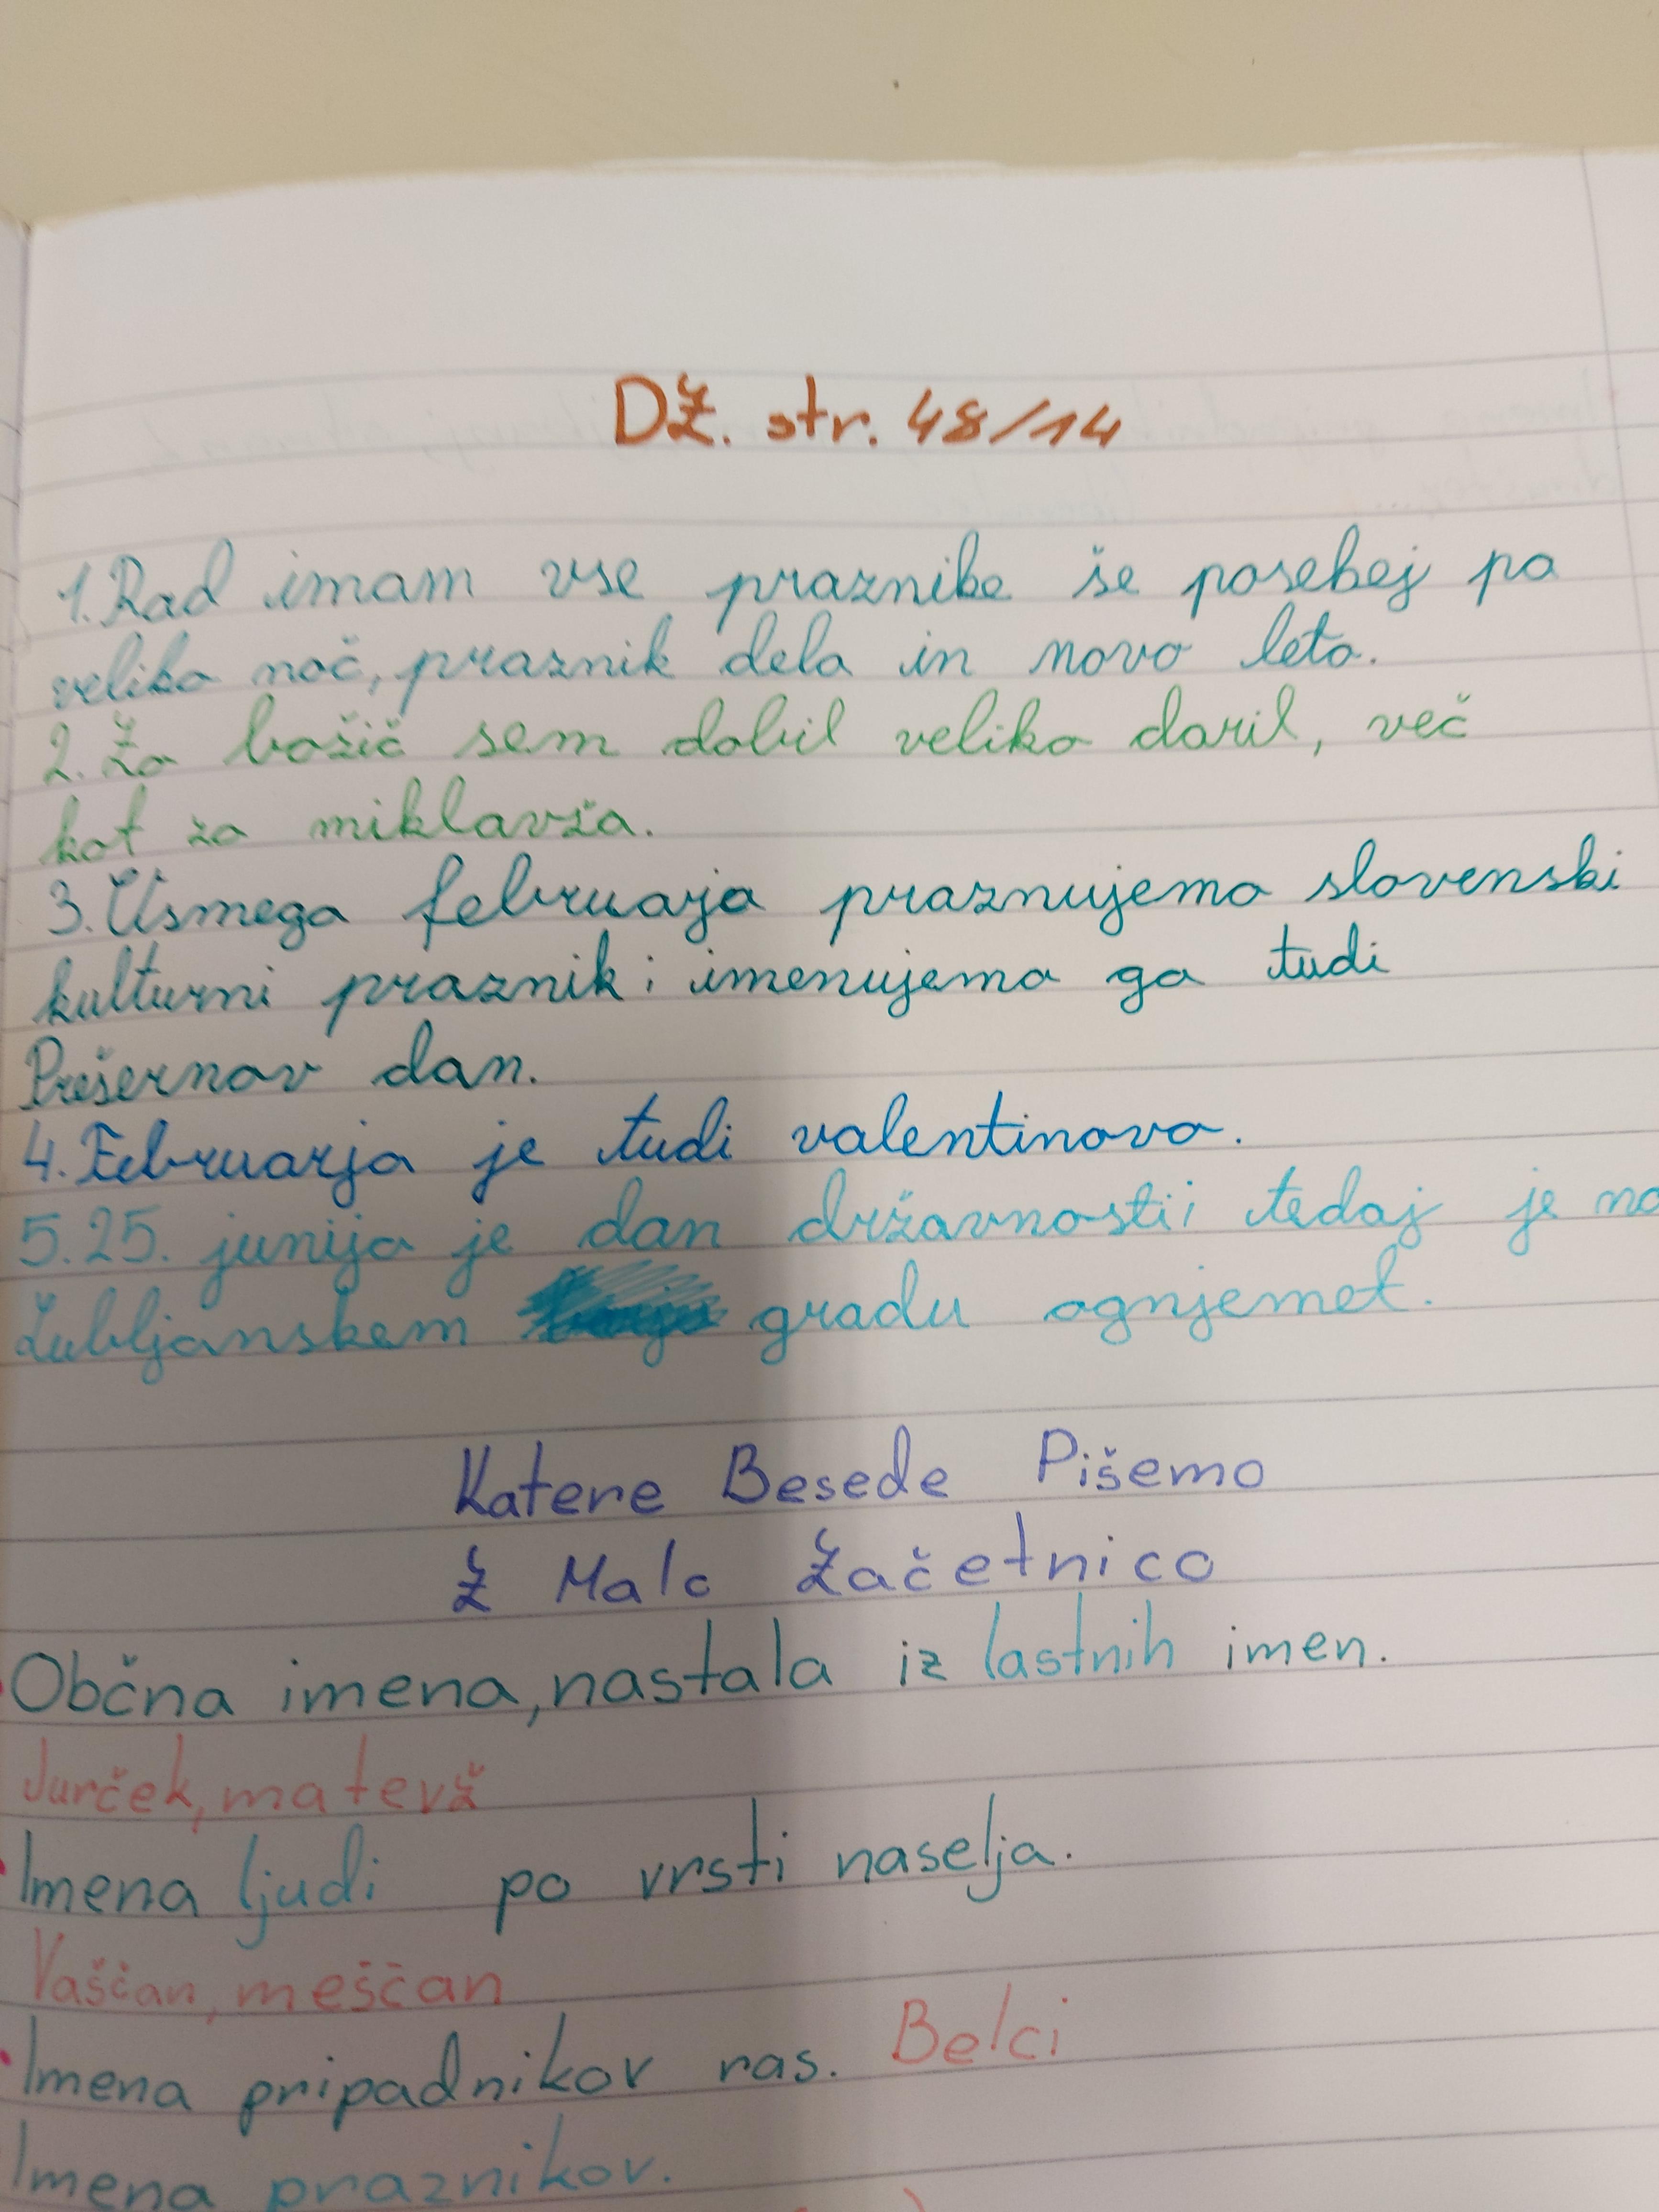 DŽ. str. 48/14
1. Rad imam vse praznike še posebej pa
veliko noč, praznik dela in novo leto.
2. Za božič sem dobil veliko daril, več
kot za miklavža.
3. Osmega februarja praznujemo slovenski
kulturni praznik; imenujemo ga tudi
Prešernov dan.
4. Februarja je tudi valentinovo.
5. 25. junija je dan državnosti; tedaj je na
Lubljanskem gradu ognjemet.
Katere Besede Pišemo
Z Malo Začetnico
Občna imena, nastala iz lastnih imen.
Jurček, matevž
Imena ljudi po vrsti naselja.
Vaščan, meščan
Imena pripadnikov ras. Belci
Imena praznikov.